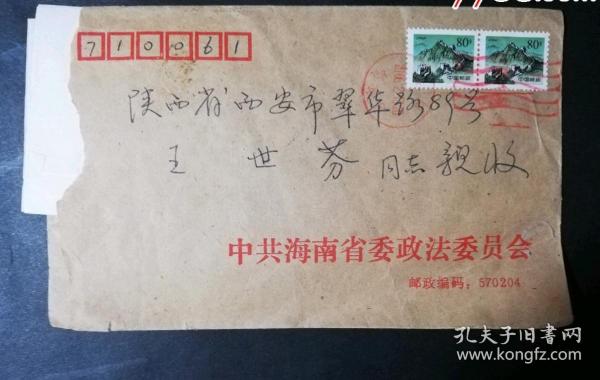 710061
80
80
陕西省西安市翠华路89号
王世芬 同志亲收
中共海南省委政法委员会
邮政编码：570204
孔夫子旧书网
www.kongfz.com